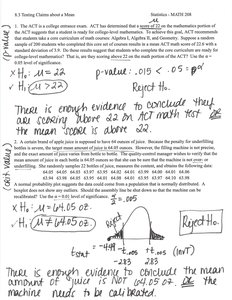 8.3 Testing Claims about a Mean Statistics - MATH 208
(p-value)
1. The ACT is a college entrance exam. ACT has determined that a score of 22 on the mathematics portion of
the ACT suggests that a student is ready for college-level mathematics. To achieve this goal, ACT recommends
that students take a core curriculum of math courses: Algebra I, Algebra II, and Geometry. Suppose a random
sample of 200 students who completed this core set of courses results in a mean ACT math score of 22.8 with a
standard deviation of 3.9. Do these results suggest that students who complete the core curriculum are ready for
college-level mathematics? That is, are they scoring above 22 on the math portion of the ACT? Use the α =
0.05 level of significance.
x H₀: μ = 22 p-value:
H₁: μ > 22 Reject H₀.
There is enough evidence to conclude
they are scoring above 22 on ACT math test or
the mean score is above 22.
(crit. value)
2. A certain brand of apple juice is supposed to have 64 ounces of juice. Because the penalty for underfilling
bottles is severe, the target mean amount of juice is 64.05 ounces. However, the filling machine is not precise,
and the exact amount of juice varies from bottle to bottle. The quality-control manager wishes to verify that the
mean amount of juice in each bottle is 64.05 ounces so that she can be sure that the machine is not over- or
underfilling. She randomly samples 22 bottles of juice, measures the content, and obtains the following data:
A normal probability plot suggests the data could come from a population that is normally distributed. A
boxplot does not show any outliers. Should the assembly line be shut down so that the machine can be
recalibrated? Use the α = 0.01 level of significance.
x H₀: μ = 64.05 oz.
H₁: μ ≠ 64.05 oz.
Reject
Reject H₀.
.005
tstat
-2.83 2.83 (invT)
There is enough evidence to conclude the mean
amount of juice is NOT 64.05 oz. or the
machine needs to be calibrated.